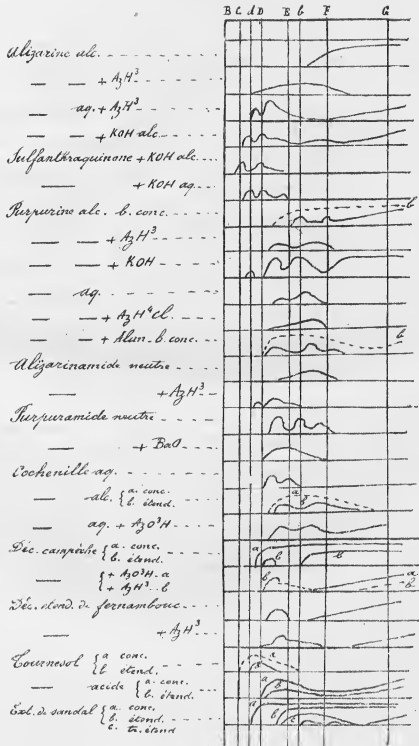 B C d D E b F G
Alizarine alc.
— — + AzH³
— aq. + AzH³
— — + KOH alc.
Sulfanthraquinone + KOH alc.
— + KOH aq.
Purpurine alc. b. conc.
— — + AzH³
— — + KOH
— aq.
— — + AzH⁴Cl.
— — + Alun. b. conc.
Alizarinamide neutre
— + AzH³
Purpuramide neutre
— + BaO
Cochenille aq.
— alc. { a. conc.
b. étend.
— aq. + AzO³H
Déc. campêche { a. conc.
b. étend.
— { + AzO³H. a
+ AzH³. b
Déc. étend. de fernambouc
— + AzH³
Tournesol { a conc.
b étend.
— acide { a. conc.
b. étend.
Ext. de santal { a conc.
b. étend.
c. tr. étend